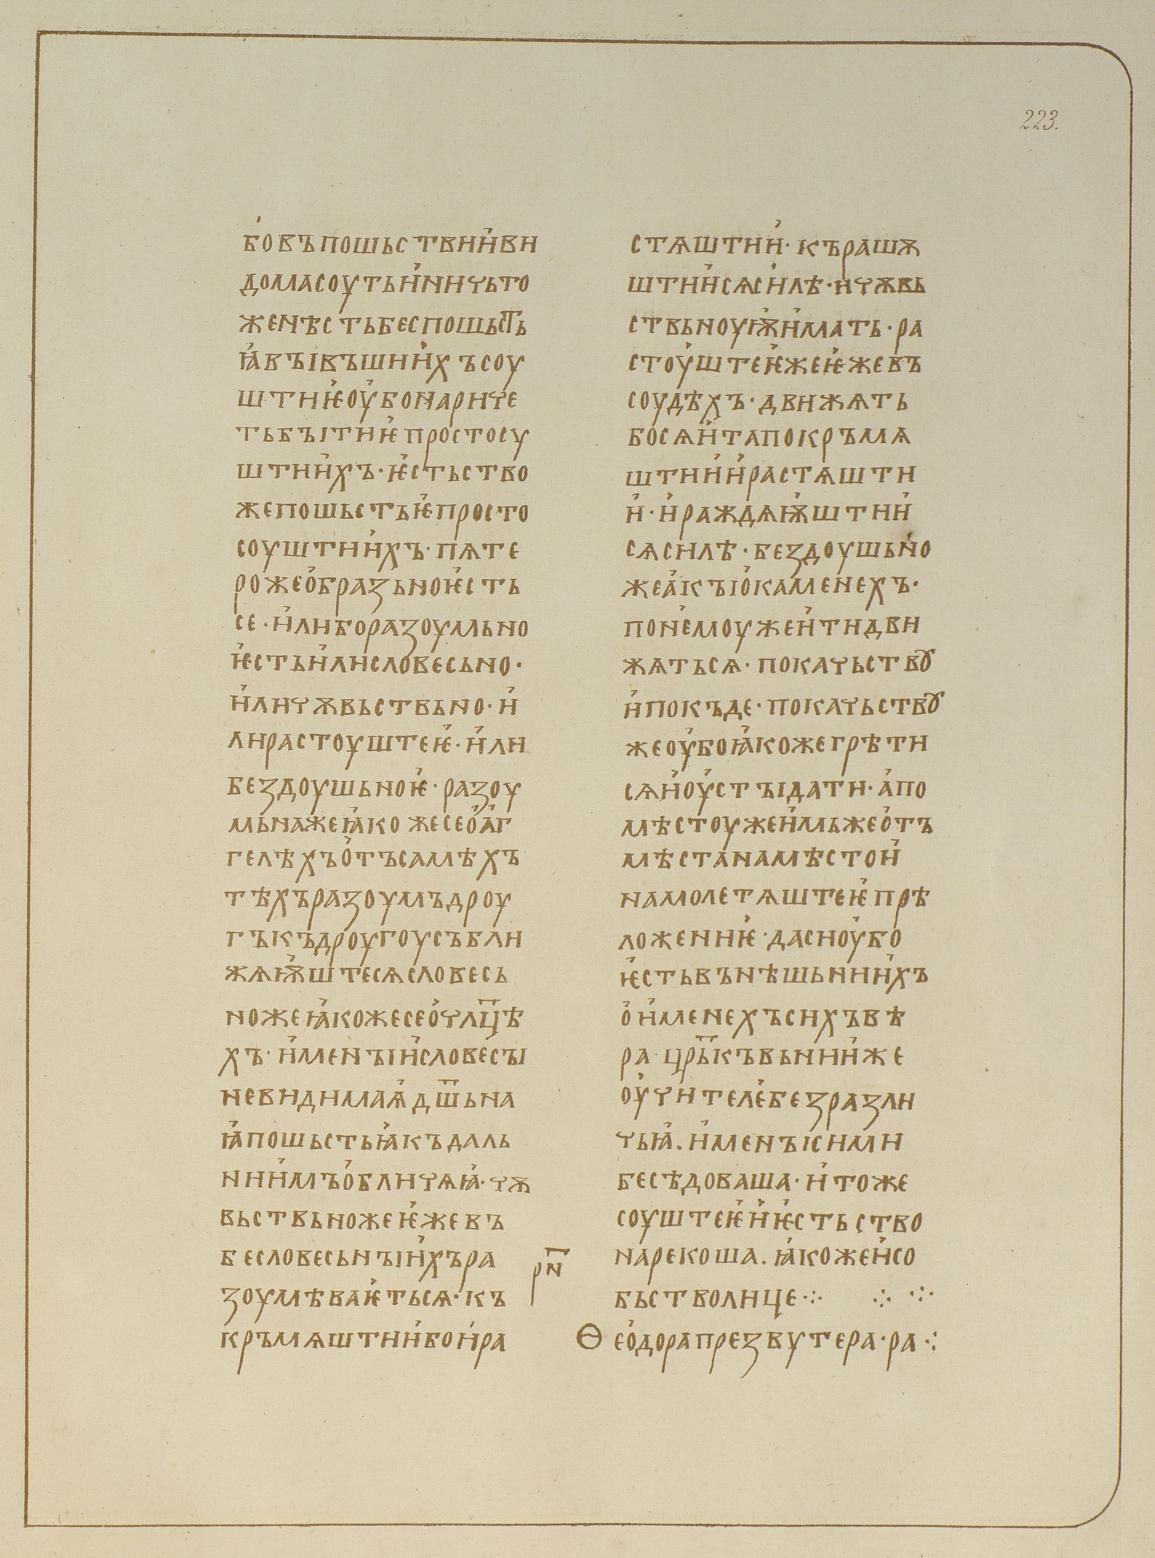 223.
бо въ пошьствии ви
дома соуть и ничьто
же нѣсть бес пошьст҃ь
ꙗ въівъшиихъ соу
штиѥ оубо наричѥ
тьбъітиѥ простосу
штиихъ· ѥстьство
же пошьстьѥ просто
соуштиихъ· пѧте
рожеобразьно ѥсть
се· или бо разоумьно
ѥсть или словесьно·
или чѫвьствьно· и
ли растоуштеѥ· или
бездоушьноѥ· разоу
мьна же ꙗкоже се о аг
гелѣхъ отъ самѣхъ
тѣхъ разоумъ дроу
гъ къ дроугоу съ бли
жѧѭште сѧ словесь
но же ꙗкоже се о чл҃цѣ
хъ· именъі и словесъі
невидимаꙗ д҃шьна
ꙗ пошьстьꙗ къ даль
ниимъ обличѧꙗ· чѫ
вьствьно же ѥже въ
бесловесьнъіихъ ра
зоумѣваѥться· къ
кръмѧштии бо и ра
стѧштии· къ рашѫ
штии сѧ силѣ· и чѫвь
ствьноуѭ имать· ра
стоуштеѥ же ѥже въ
соудѣхъ· движѧть
бо сѧ и та покръмѧ
штии и растѧшти
и· и раждѧѭштии
сѧ силѣ· бездоушьно
же акъі о каменехъ·
понемоу же и ти дви
жѧть сѧ· по качьствꙋ
и по къде· по качьствꙋ
же оубо ꙗкоже грѣти
сѧ и оустъідати· а по
мѣстоу же имьже отъ
мѣста на мѣсто и
намолетѧштеѥ прѣ
ложениѥ· да си оубо
ѥсть вънѣшьниихъ
о именехъ сихъ вѣ
ра· цр҃ькъвьнии же
оучителе безразли
чьꙗ. именъі сими
бесѣдоваша· и тоже
соуштеѥ и ѥстьство
нарекоша. ꙗкоже и со
бьство лице ⁘ ⁘ ⁘
р҃н
Ѳеодора презвутера· ра ⁘